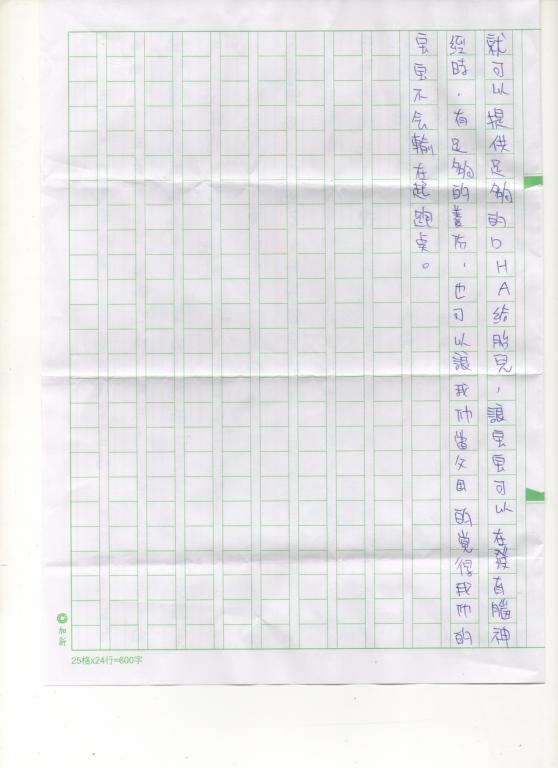 就可以提供足夠的DHA給胎兒，讓宝宝可以在發育腦神
經時，有足夠的養分，也可以讓我们當父母的覺得我们的
宝宝不会輸在起跑点。
加新
25格x24行=600字